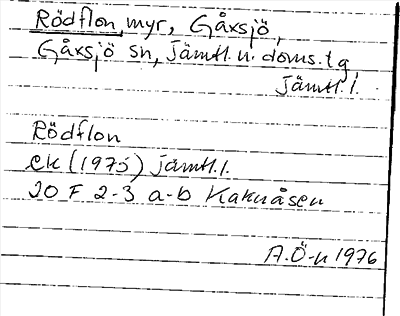 Rödflon, myr, Gåxsjö,
Gåxsjö sn, Jämtl. n. doms. tg
Jämtl. l.
Rödflon
ek (1975) Jämtl. l.
20 F 2-3 a-b Kaknåsen
A.Ö-n 1976